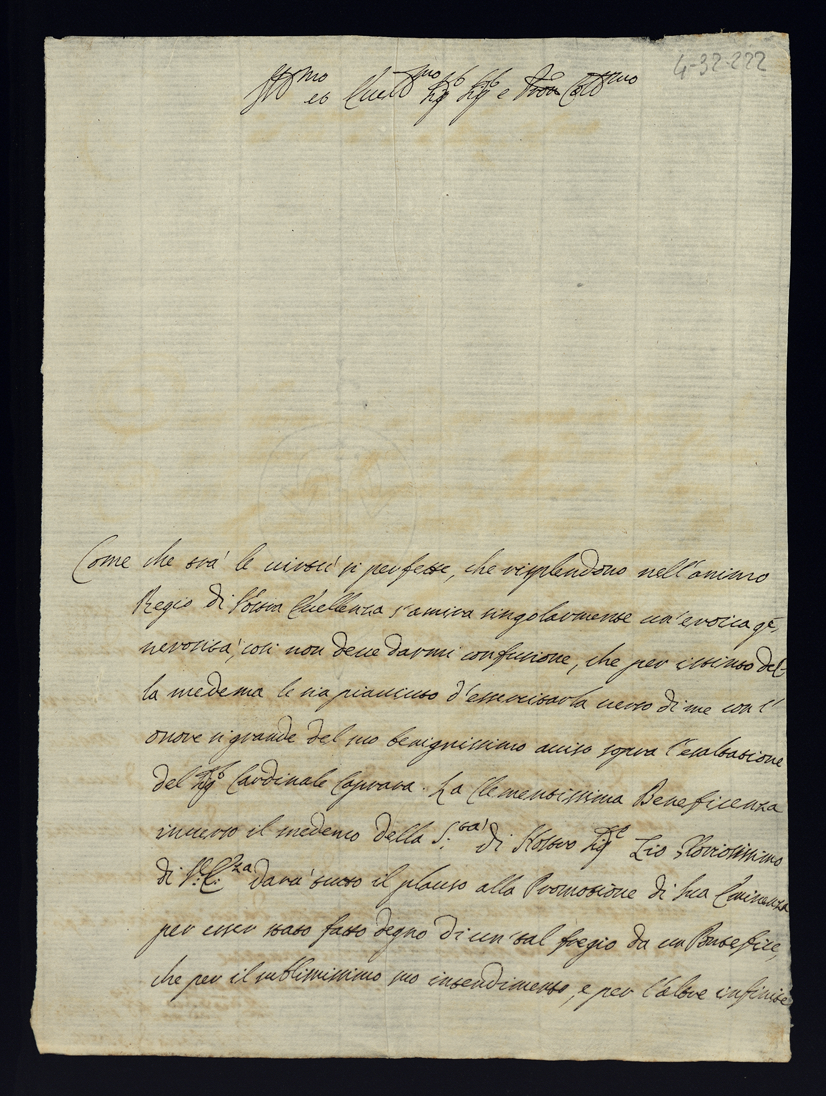 4-32-222
Ill.mo et Ecc.mo Sig.r Sig.r e P̄ron Col.mo
Come che trà le virtù sì perfette, che risplendono nell'animo
Regio di Vostra Eccellenza s'amira singolarmente un'eroica ge-
nerosità, così non deve darmi confusione, che per istinto del-
la medema le sia piaciuto d'essercitarla verso di me con l'
onore sì grande del suo benignissimo aviso sopra l'esaltazione
del Sig.r Cardinale Caprara. La Clementissima Beneficenza
inverso il medemo della S.: tà di Nostro Sig.re Zio Gloriosissimo
di V.: E.: za darà tutto il plauso alla Promozione di Sua Eminenza
per esser stato fatto degno di un tal fregio da un Pontefice,
che per il sublimissimo suo intendimento, e per l'altre infinite